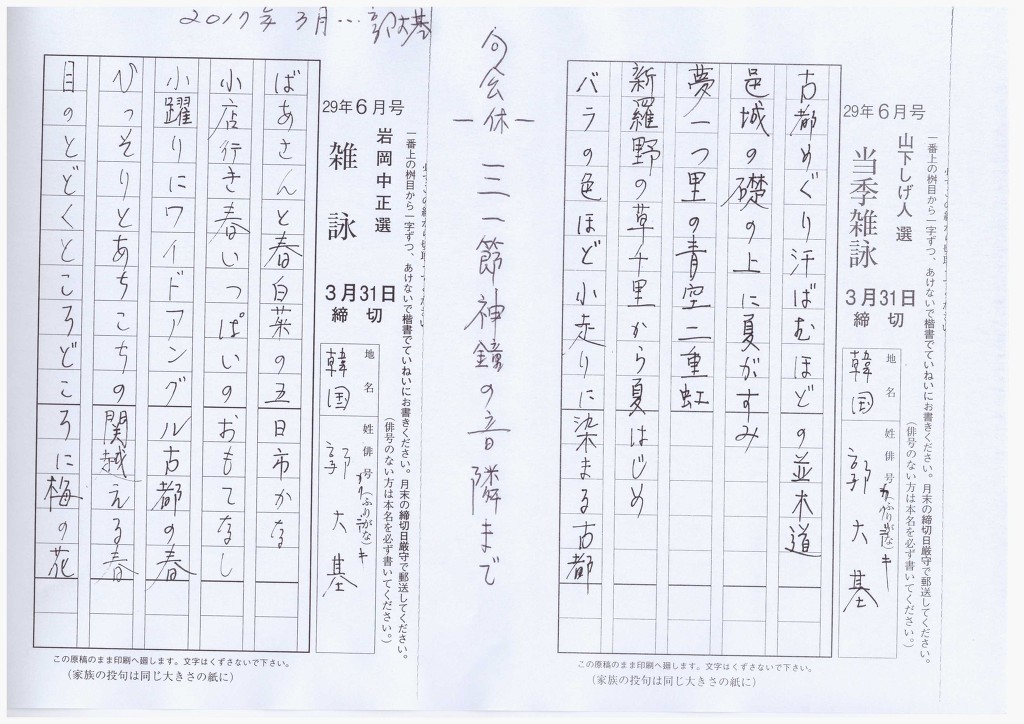 2017年3月…郭大基
一番上の桝目から一字ずつ、あけないで楷書でていねいにお書きください。月末の締切日厳守で郵送してください。
(俳号のない方は本名を必ず書いてください。)
29年6月号
山下しげ人 選
当季雑詠
3月31日
締切
地名
韓国
姓 俳号(ふりがな)
郭大基
古都めぐり汗ばむほどの並木道
邑城の礎の上に夏がすみ
夢一つ里の青空二重虹
新羅野の草千里から夏はじめ
バラの色ほど小走りに染まる古都
この原稿のまま印刷へ廻します。文字はくずさないで下さい。
(家族の投句は同じ大きさの紙に)
句会休
三一節神鐘の音隣まで
一番上の桝目から一字ずつ、あけないで楷書でていねいにお書きください。月末の締切日厳守で郵送してください。
(俳号のない方は本名を必ず書いてください。)
29年6月号
岩岡中正 選
雑詠
3月31日
締切
地名
韓国
姓 俳号(ふりがな)
郭大基
ばあさんと春白菜の五日市かな
小店行き春いっぱいのおもてなし
小躍りにワイドアングル古都の春
ひっそりとあちこちの関越える春
目のとどくところどころに梅の花
この原稿のまま印刷へ廻します。文字はくずさないで下さい。
(家族の投句は同じ大きさの紙に)